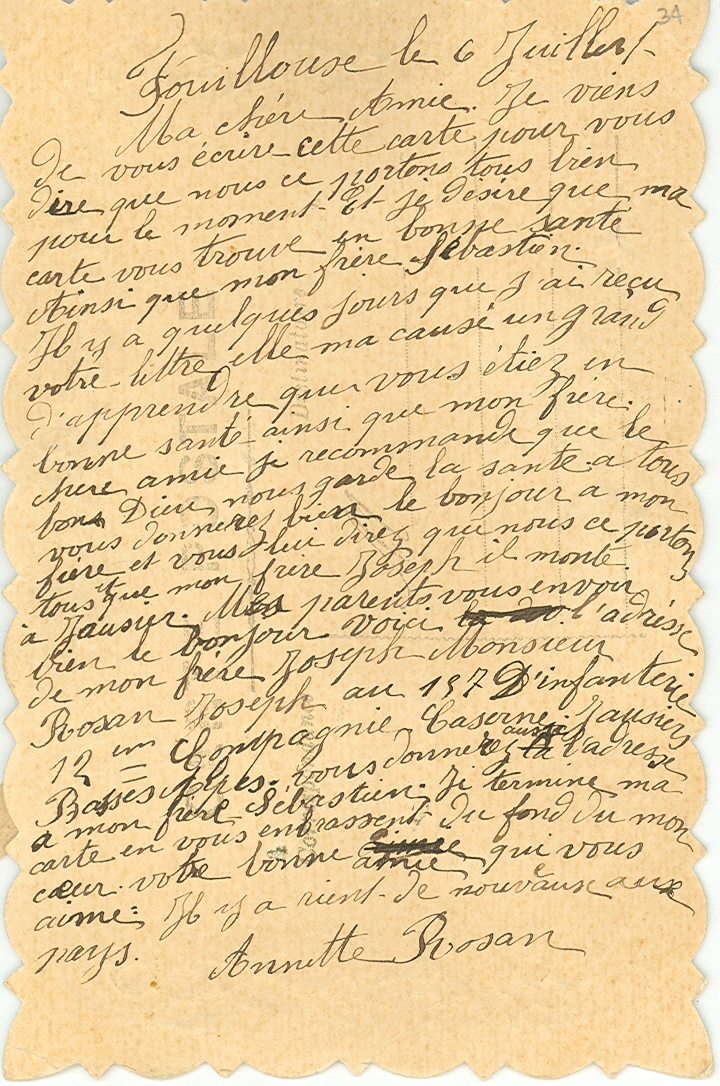 34
Fouillouse le 6 Juillet
Ma chére Amie. Je viens
de vous écrire cette carte pour vous
dire que nous ce portons tous bien
pour le moment. Et je désire que ma
carte vous trouve en bonne santé
Ainsi que mon frère Sébastien.
Il y a quelques jours que j'ai reçu
votre littre, elle ma causé un grand
d'apprendre que vous étiez en
bonne santé ainsi que mon frére.
chere amie je recommande que le
bon Dieu nous garde la santé a tous
vous donnerez bien le bonjour a mon
frère et vous lui direz que nous ce portons
tous et que mon frère Joseph il monte
à Jausier. Mes parents vous envoir
bien le bonjour voici l'adrésse
de mon frére Joseph Monsieur
Rosan Joseph au 157 D'infanterie
12 em Compagnie Caserne Jausiers
Basses Alpes. vous donnerez aussi l'adresse
a mon frére Sébastien. Je termine ma
carte en vous embrassent du fond du mon
cœur. votre bonne amie qui vous
aime: Il y a rient de nouvaux aux
pays.
Annette Rosan
CARTE POSTALE
Correspondance
Destinataire